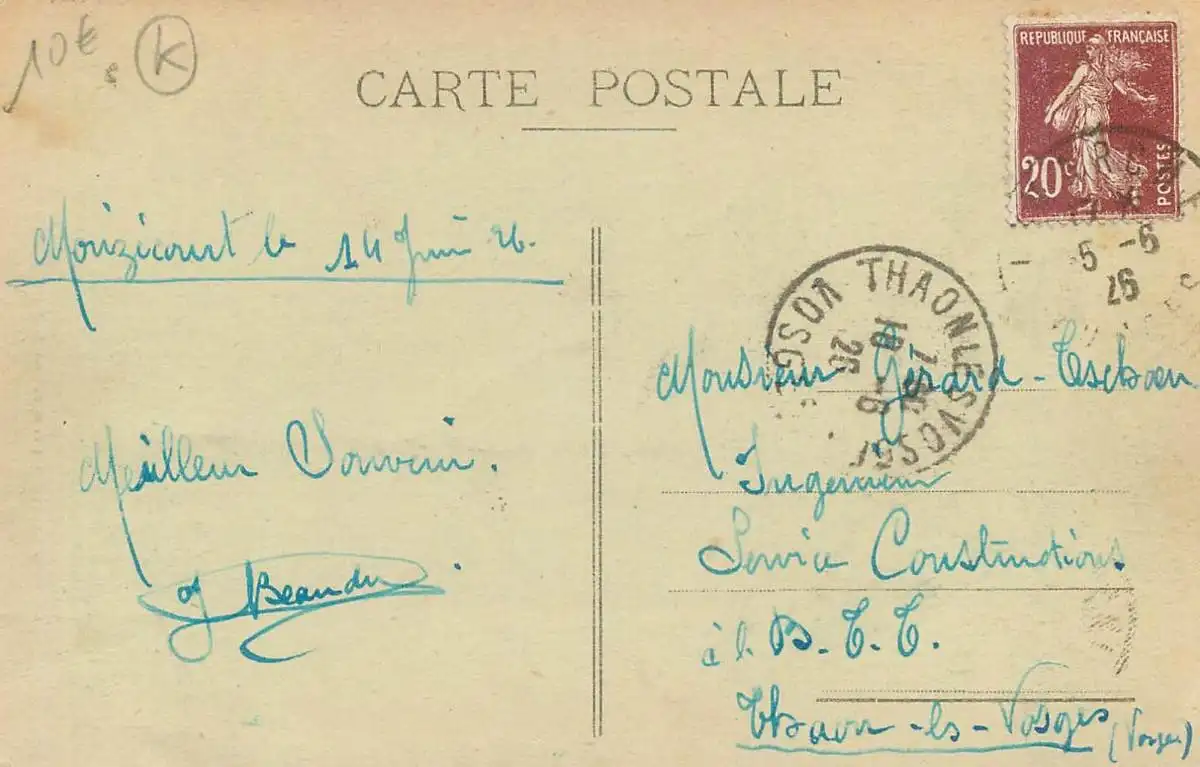 10€
K
CARTE POSTALE
REPUBLIQUE FRANÇAISE
20c
POSTES
5 -6
26
THAON LES VOSGES
VOSGES
Monzicourt le 14 Juin 26.
Meilleur Souvenir.
J Beaudu
Monsieur Gérard - Eschoen
Ingenieur
Service Constructions
à la B. T. T.
Thaon-les-Vosges (Vosges)